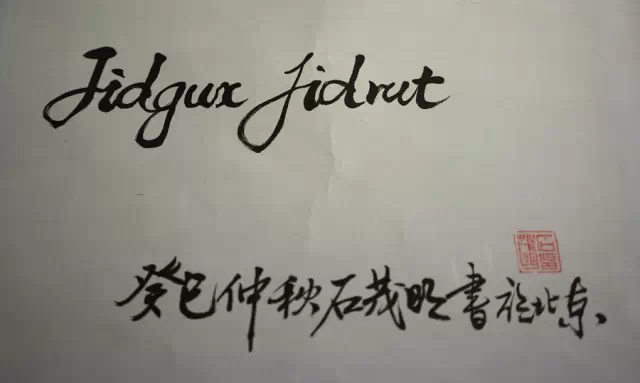 Jidgux Jidrut
癸巳仲秋石茂明書於北京